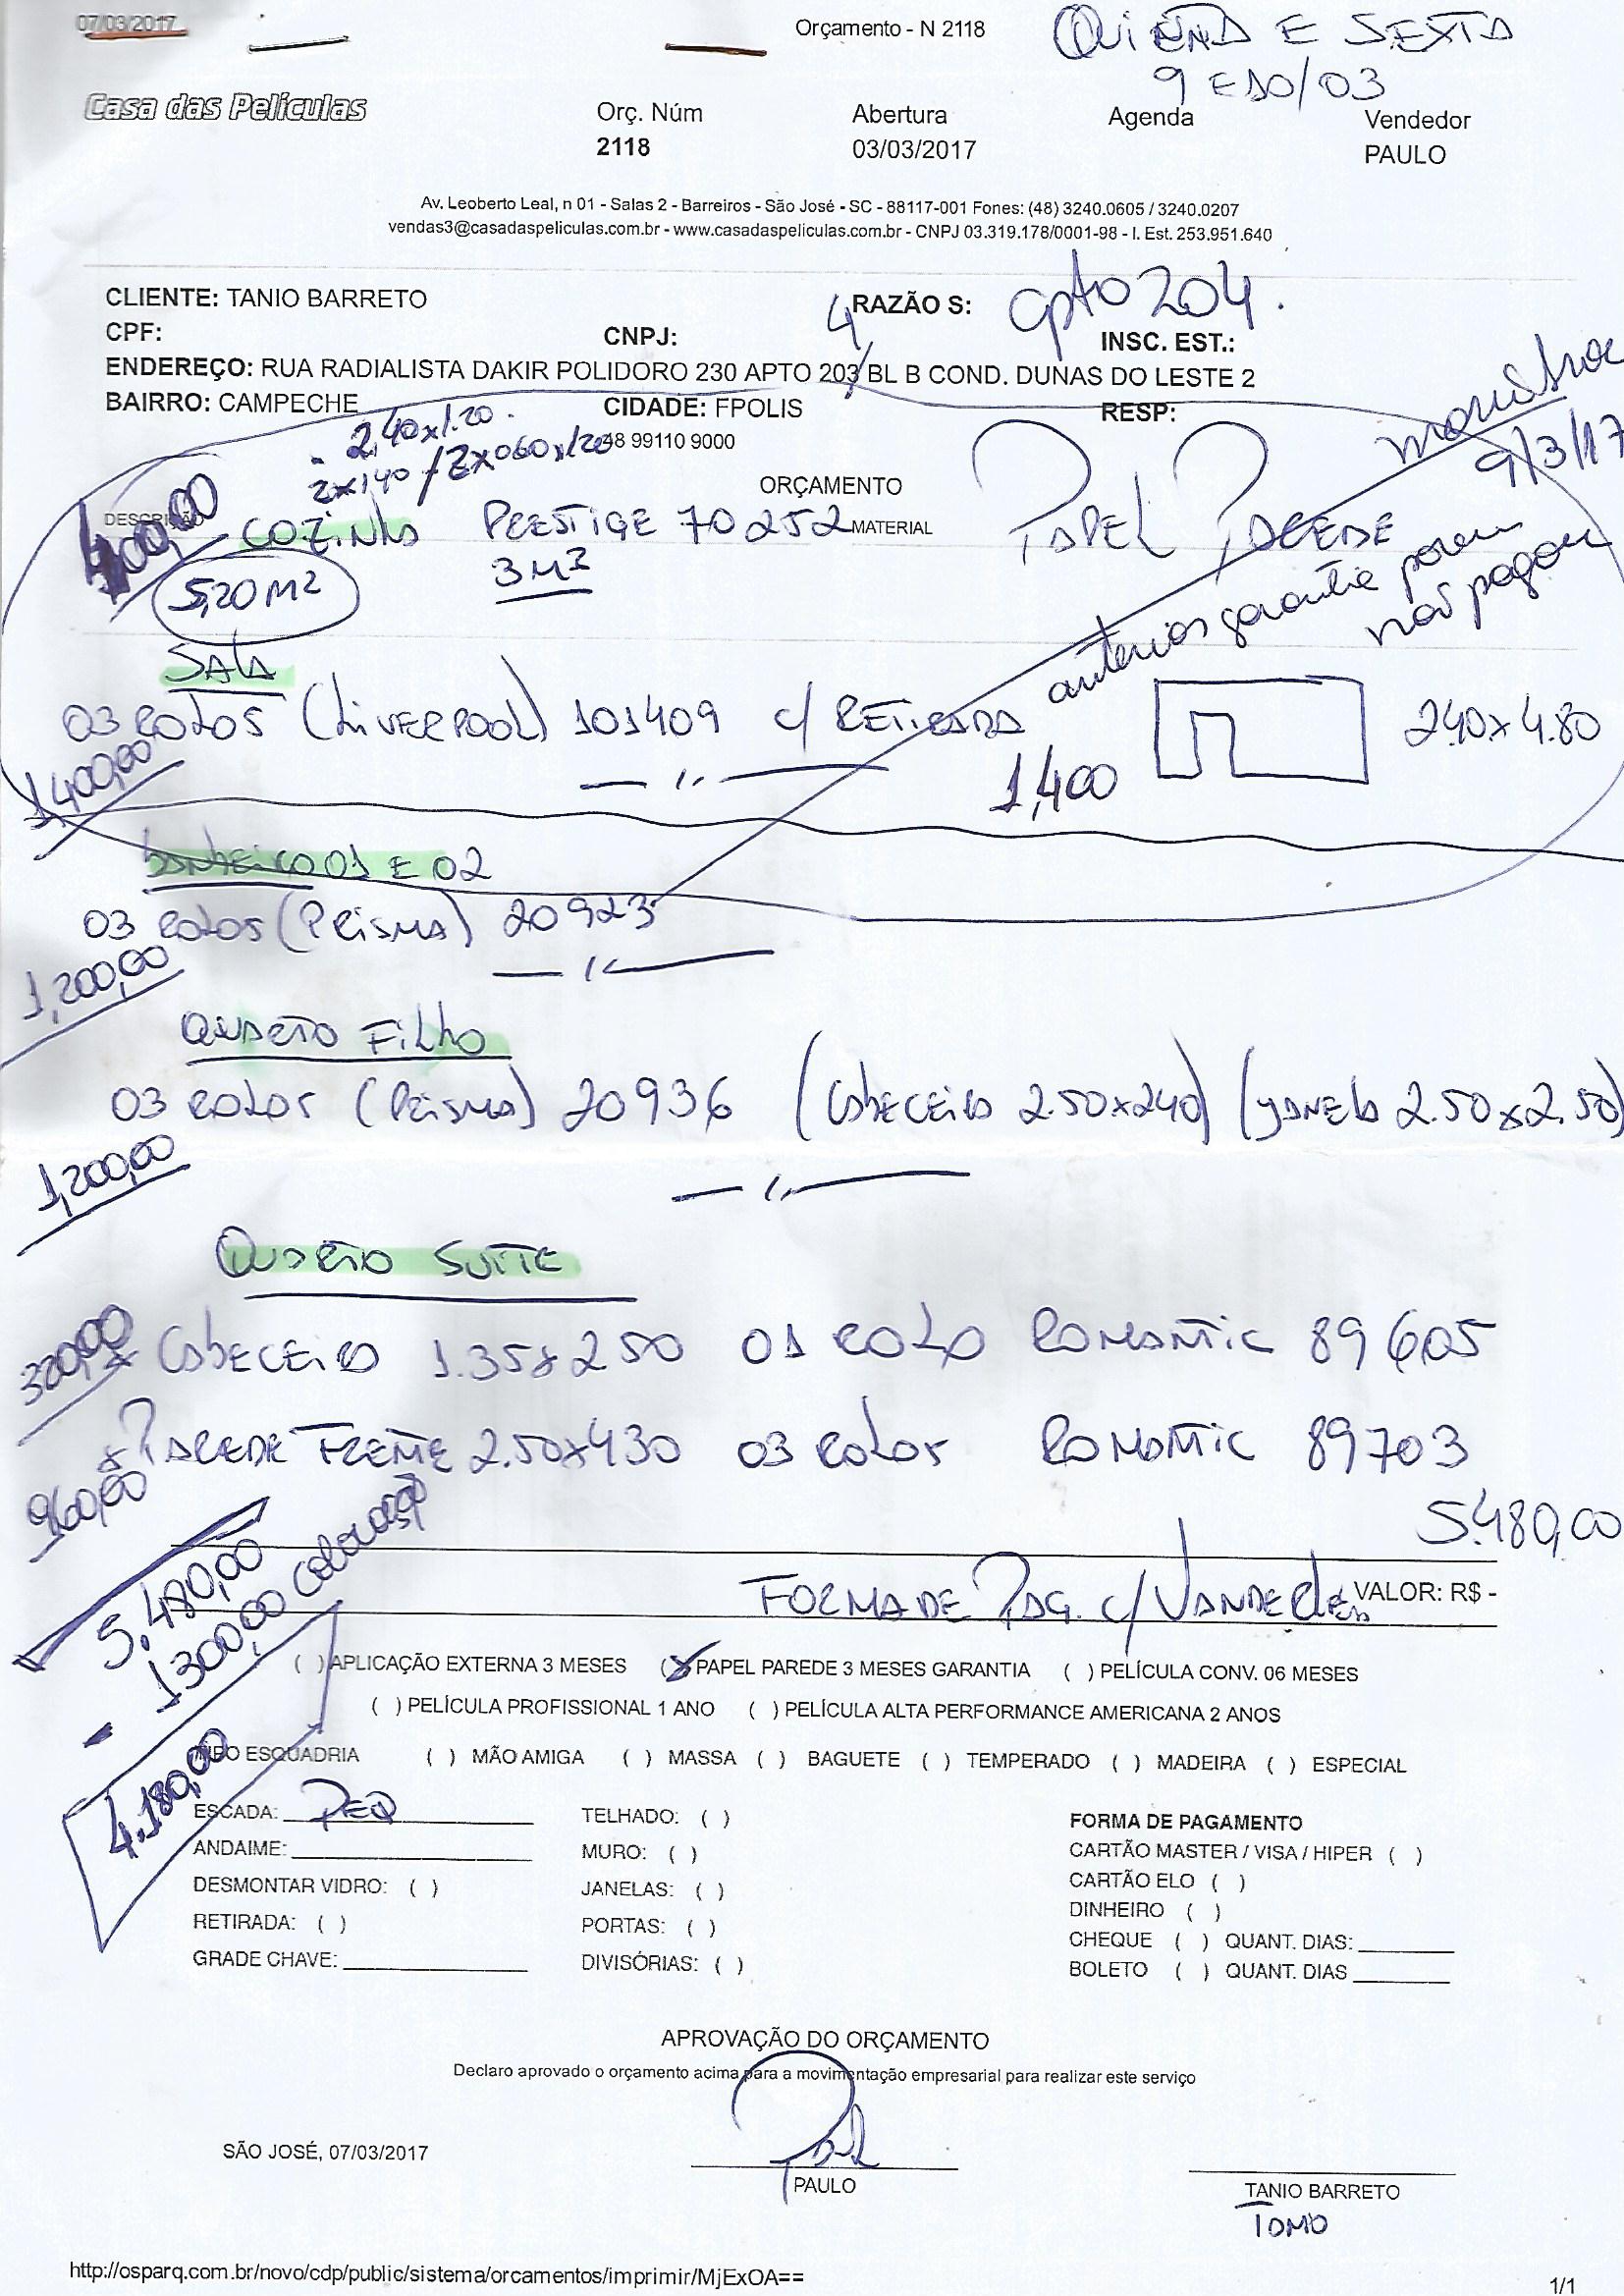 07/03/2017
Orçamento - N 2118
QUINTA E SEXTA
9 E 10/03
Casa das Películas
Orç. Núm Abertura Agenda Vendedor
2118 03/03/2017 PAULO
Av. Leoberto Leal, n 01 - Salas 2 - Barreiros - São José - SC - 88117-001 Fones: (48) 3240.0605 / 3240.0207
vendas3@casadaspeliculas.com.br - www.casadaspeliculas.com.br - CNPJ 03.319.178/0001-98 - I. Est. 253.951.640
CLIENTE: TANIO BARRETO
RAZÃO S:
apto 204.
CPF:
CNPJ:
4
INSC. EST.:
ENDEREÇO: RUA RADIALISTA DAKIR POLIDORO 230 APTO 203 BL B COND. DUNAS DO LESTE 2
BAIRRO: CAMPECHE
CIDADE: FPOLIS
RESP:
2,40x1.20
48 99110 9000
9/3/17
ORÇAMENTO
DESCRIÇÃO
MATERIAL
400,00
COZINHA PRESTIGE 70252
PAPEL PAREDE
5,20 M2
3 M2
anterior garantia porem
não pagou
SALA
03 ROLOS (LIVERPOOL) 101409 C/ RETIRADA
240x4.80
1,400
1,400,00
BANHEIRO 01 E 02
03 ROLOS (PRISMA) 20923
1,200,00
QUARTO FILHO
03 ROLOS (PRISMA) 20936 (CABECEIRA 2.50x240) (JANELA 2.50x2.50)
1,200,00
QUARTO SUITE
320,00
CABECEIRA 1.35x250 01 ROLO ROMANTIC 89605
PAREDE FRENTE 2.50x430 03 ROLOS ROMANTIC 89703
960,00
5.480,00
5.480,00
- 1300,00 colocação
4.180,00
FORMA DE PAG. C/ VANDERLEIA
VALOR: R$ -
( ) APLICAÇÃO EXTERNA 3 MESES (X) PAPEL PAREDE 3 MESES GARANTIA ( ) PELÍCULA CONV. 06 MESES
( ) PELÍCULA PROFISSIONAL 1 ANO ( ) PELÍCULA ALTA PERFORMANCE AMERICANA 2 ANOS
TIPO ESQUADRIA ( ) MÃO AMIGA ( ) MASSA ( ) BAGUETE ( ) TEMPERADO ( ) MADEIRA ( ) ESPECIAL
ESCADA: PEQ
TELHADO: ( )
FORMA DE PAGAMENTO
ANDAIME:
MURO: ( )
CARTÃO MASTER / VISA / HIPER ( )
DESMONTAR VIDRO: ( )
JANELAS: ( )
CARTÃO ELO ( )
RETIRADA: ( )
PORTAS: ( )
DINHEIRO ( )
GRADE CHAVE:
DIVISÓRIAS: ( )
CHEQUE ( ) QUANT. DIAS:
BOLETO ( ) QUANT. DIAS
APROVAÇÃO DO ORÇAMENTO
Declaro aprovado o orçamento acima para a movimentação empresarial para realizar este serviço
SÃO JOSÉ, 07/03/2017
PAULO
TANIO BARRETO
http://osparq.com.br/novo/cdp/public/sistema/orcamentos/imprimir/MjExOA==
1/1